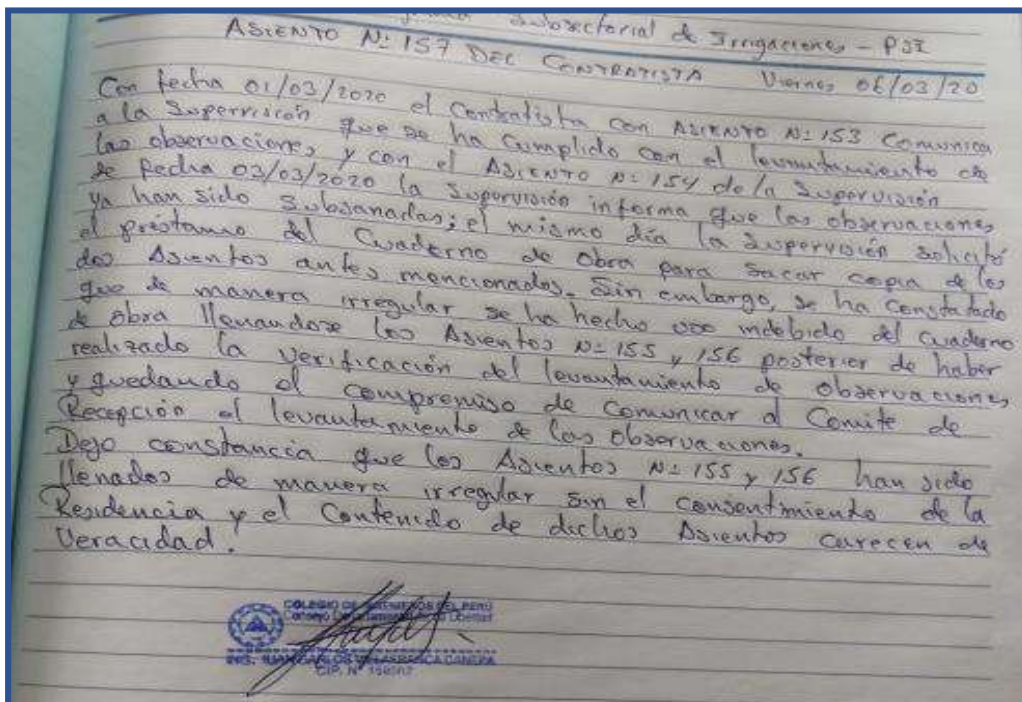 Subsectorial de Irrigaciones - PSI
ASIENTO Nº 157 DEL CONTRATISTA Viernes 06/03/20
Con fecha 01/03/2020 el Contratista con ASIENTO Nº 153 Comunica
a la Supervisión que se ha cumplido con el levantamiento de
las observaciones y con el ASIENTO Nº 154 de la Supervisión
de fecha 03/03/2020 la Supervisión informa que las observaciones
ya han sido Subsanadas; el mismo día la Supervisión solicitó
el préstamo del Cuaderno de obra para sacar copia de los
dos Asientos antes mencionados. Sin embargo, se ha Constatado
que de manera irregular se ha hecho uso indebido del Cuaderno
de obra llenandose los Asientos Nº 155 y 156 posterior de haber
realizado la verificación del levantamiento de observaciones
y quedando el compromiso de comunicar al Comite de
Recepción el levantamiento de las observaciones.
Dejo constancia que los Asientos Nº 155 y 156 han sido
llenados de manera irregular sin el consentimiento de la
Residencia y el Contenido de dichos Asientos carecen de
Veracidad.
COLEGIO DE INGENIEROS DEL PERÚ
Consejo Departamental Libertad
ING. JUAN CARLOS
CIP. Nº